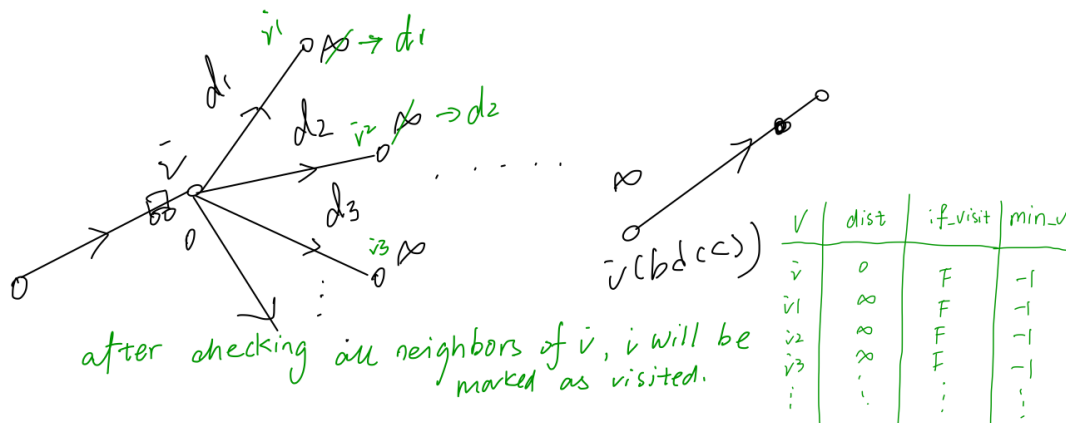 v̇1
∞ → d1
d1
d2
v̇2
∞ → d2
v̇
. . . . . .
d3
0
v̇3 ∞
⋮
∞
v̇(bd(c))
after checking all neighbors of v̇, v̇ will be
marked as visited.
V dist if_visit min_v
v̇ 0 F -1
v̇1 ∞ F -1
v̇2 ∞ F -1
v̇3 ∞ F -1
⋮ ⋮ ⋮ ⋮